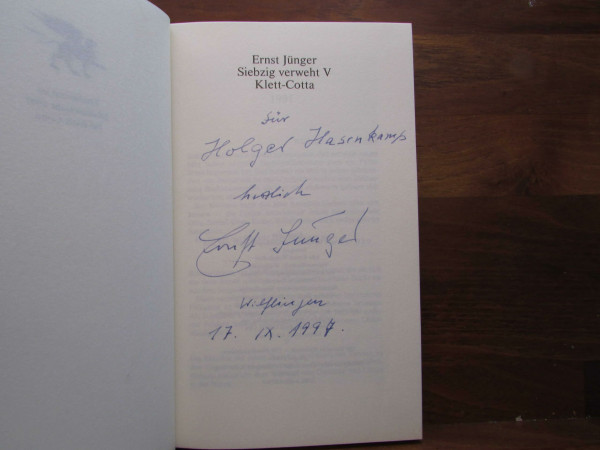 Ernst Jünger
Siebzig verweht V
Klett-Cotta
für
Holger Hasenkamp
herzlich
Ernst Jünger
Wilflingen
17. IX. 1997.